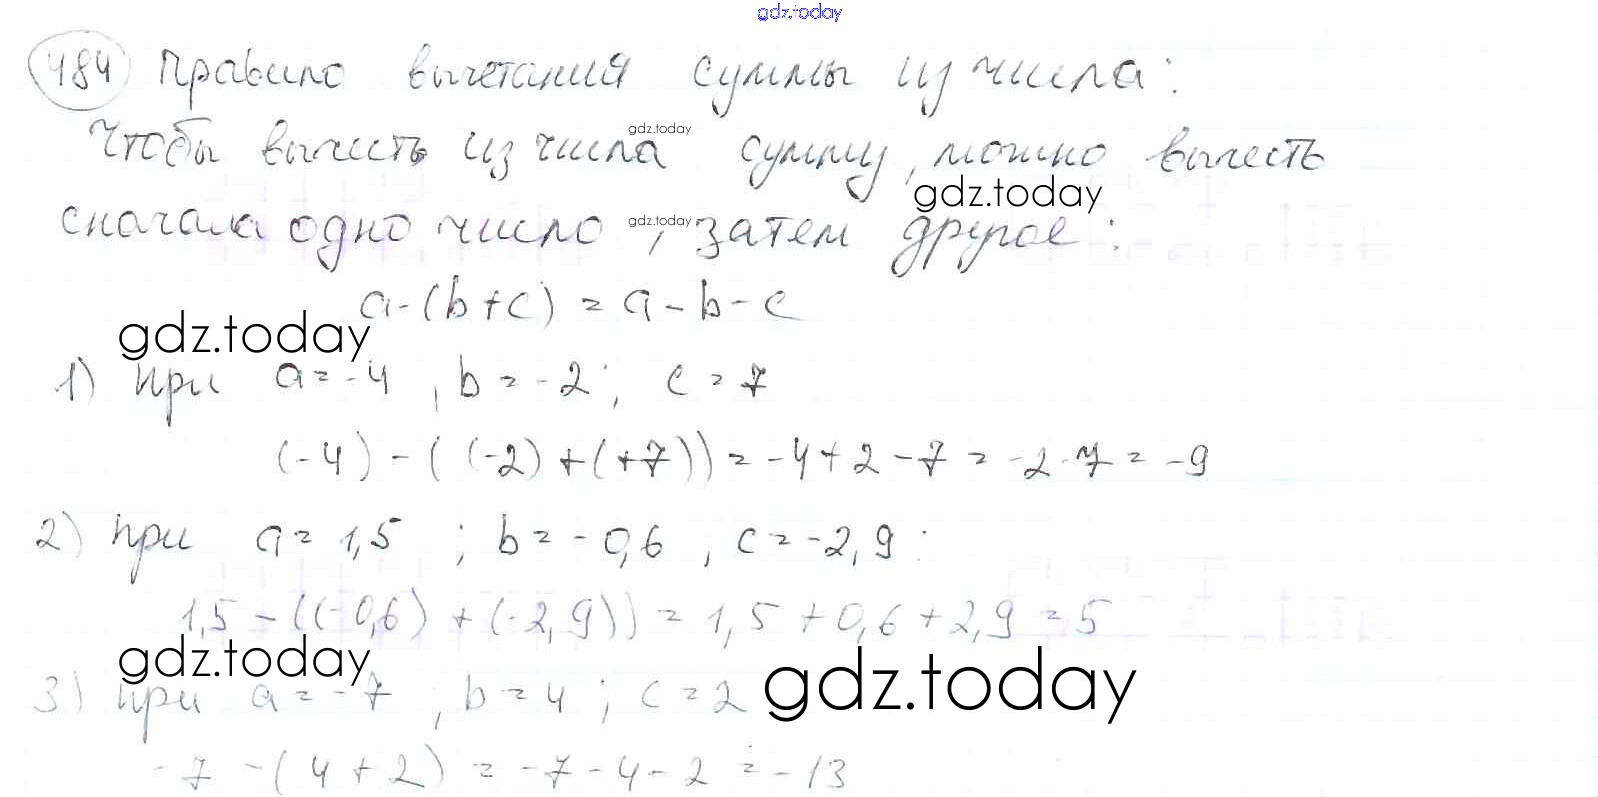 gdz.today
484 Правило вычетания суммы из числа:
gdz.today
Чтобы вычесть из числа сумму, можно вычесть
gdz.today
сначала одно число, затем другое:
gdz.today
a-(b+c) = a-b-c
gdz.today
1) при a=-4, b=-2; c=7
(-4)-((-2)+(+7))=-4+2-7=-2-7=-9
2) при a=1,5; b=-0,6, c=-2,9:
1,5-((-0,6)+(-2,9))=1,5+0,6+2,9=5
gdz.today
3) при a=-7, b=4; c=2
gdz.today
-7-(4+2)=-7-4-2=-13